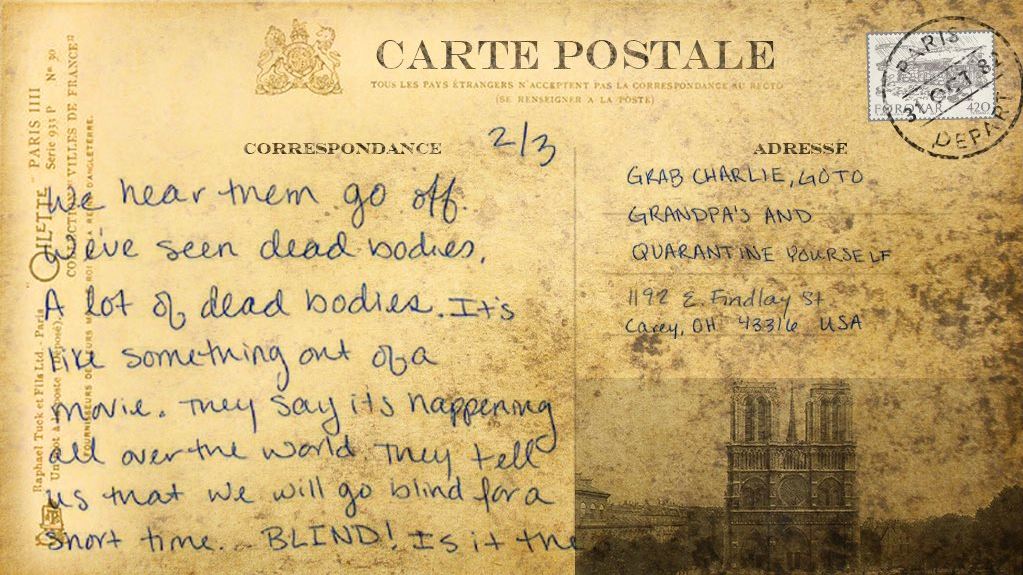 CARTE POSTALE
TOUS LES PAYS ÉTRANGERS N'ACCEPTENT PAS LA CORRESPONDANCE AU RECTO
(SE RENSEIGNER A LA POSTE)
PARIS
31 OCT 82
DEPART
FØROYAR 420
CORRESPONDANCE
2/3
We hear them go off.
We've seen dead bodies.
A lot of dead bodies. It's
like something out of a
movie. They say its happening
all over the world. They tell
us that we will go blind for a
short time... BLIND! Is it the
ADRESSE
GRAB CHARLIE, GO TO
GRANDPA'S AND
QUARANTINE YOURSELF
1192 E. Findlay St.
Carey, OH 43316 USA
"OILETTE" PARIS IIII
Série 933 P Nº 36
COLLECTION VILLES DE FRANCE"
Raphael Tuck et Fils Ltd. - Paris